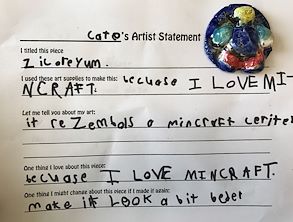 Cate's Artist Statement
I titled this piece
ZiLoreYum.
I used these art supplies to make this: becuase I LOVE MI-
NCRAFT.
Let me tell you about my art:
it reZembols a mincraft
One thing I love about this piece:
becuase I LOVE MINCRAFT.
One thing I might change about this piece if I made it again:
make it LOOK a bit beder